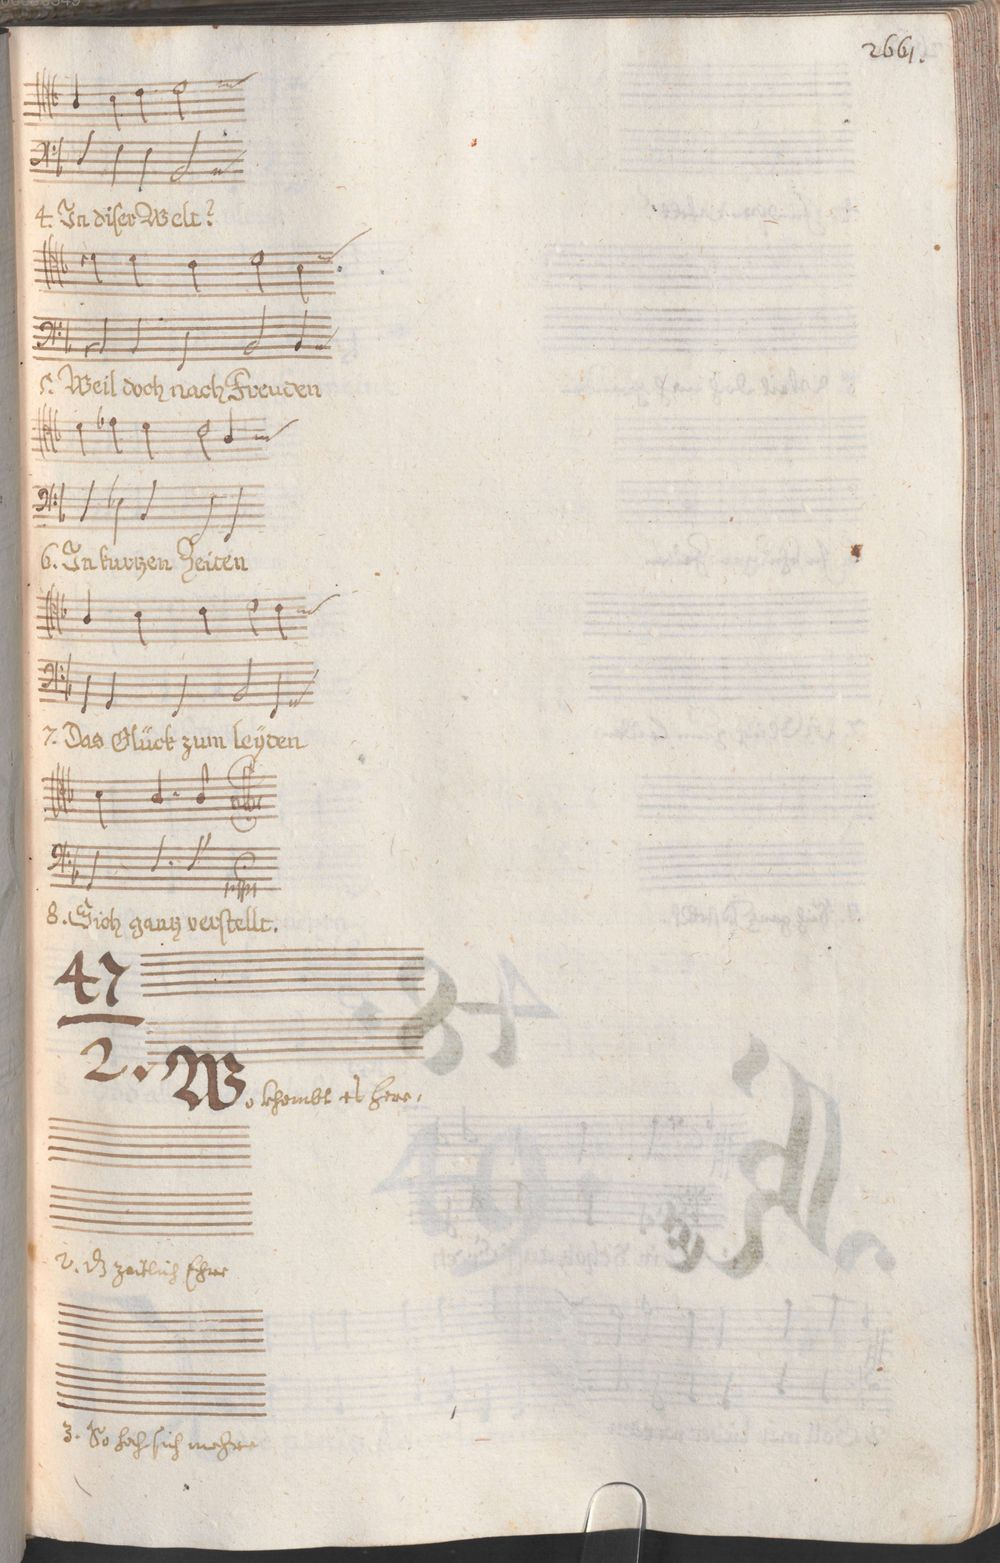 266.
4. In diser Welt?
5. Weil doch nach Freuden
6. In kurtzen Zeiten
7. Das Glück zum leÿden
8. Sich gantz verstellt.
47
2. Wo khombt es here,
2. dz zeitlich Ehre
3. So hoch sich mehre